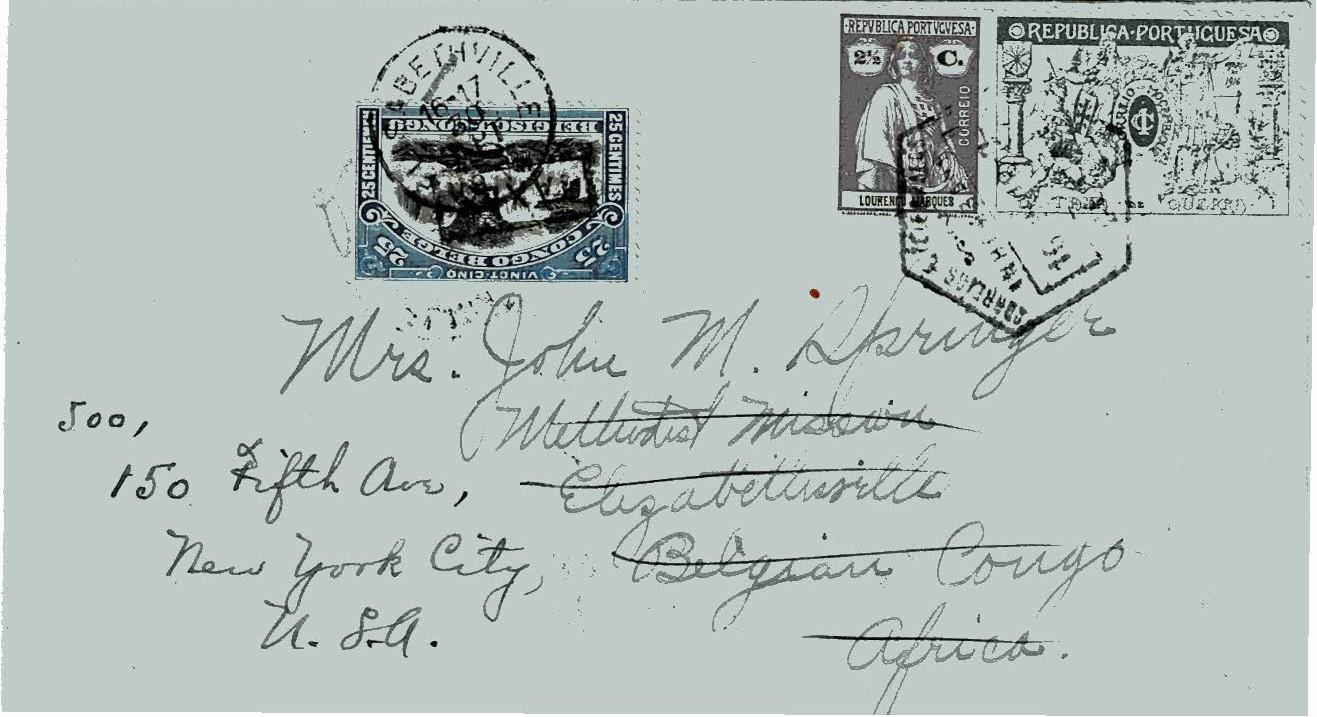 REPVBLICA PORTVGVESA
2½ C.
CORREIO
LOURENÇO MARQUES
REPUBLICA·PORTUGUESA
TAXA DE GUERRA
16-17
BELGISCH-CONGO
25 CENTIEM
25 CENTIMES
CONGO BELGE
25 25
VINGT-CINQ CENTIMES
Mrs. John M. Springer
Methodist Mission
Elizabethville
Belgian Congo
Africa.
500,
150 Fifth Ave,
New York City,
U.S.A.